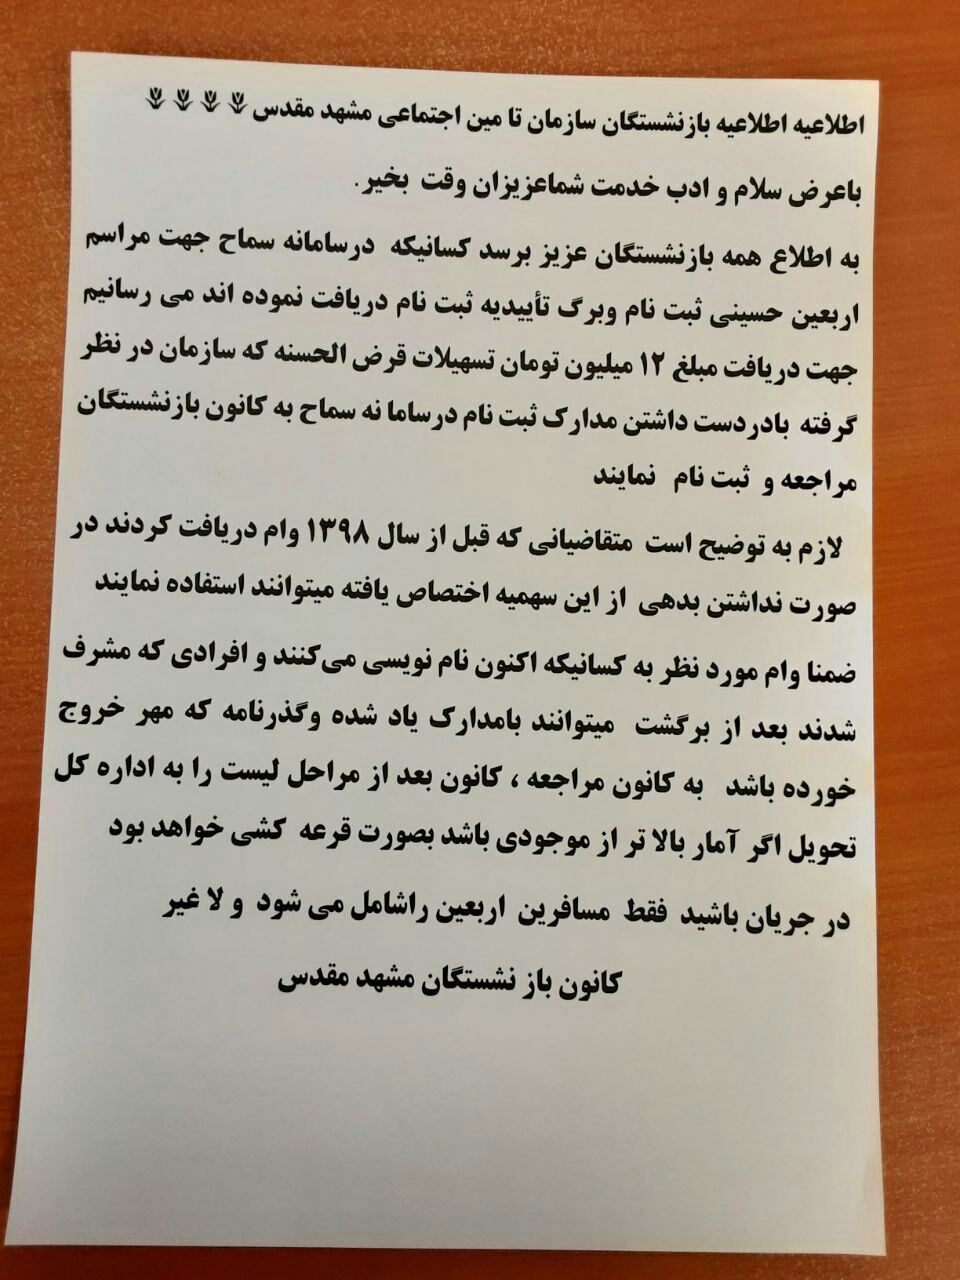 اطلاعیه اطلاعیه بازنشستگان سازمان تا مین اجتماعی مشهد مقدس
باعرض سلام و ادب خدمت شماعزیزان وقت بخیر.
به اطلاع همه بازنشستگان عزیز برسد کسانیکه درسامانه سماح جهت مراسم
اربعین حسینی ثبت نام وبرگ تأییدیه ثبت نام دریافت نموده اند می رسانیم
جهت دریافت مبلغ ۱۲ میلیون تومان تسهیلات قرض الحسنه که سازمان در نظر
گرفته بادردست داشتن مدارک ثبت نام درساما نه سماح به کانون بازنشستگان
مراجعه و ثبت نام نمایند
لازم به توضیح است متقاضیانی که قبل از سال ۱۳۹۸ وام دریافت کردند در
صورت نداشتن بدهی از این سهمیه اختصاص یافته میتوانند استفاده نمایند
ضمنا وام مورد نظر به کسانیکه اکنون نام نویسی می‌کنند و افرادی که مشرف
شدند بعد از برگشت میتوانند بامدارک یاد شده وگذرنامه که مهر خروج
خورده باشد به کانون مراجعه ، کانون بعد از مراحل لیست را به اداره کل
تحویل اگر آمار بالا تر از موجودی باشد بصورت قرعه کشی خواهد بود
در جریان باشید فقط مسافرین اربعین راشامل می شود و لا غیر
کانون باز نشستگان مشهد مقدس